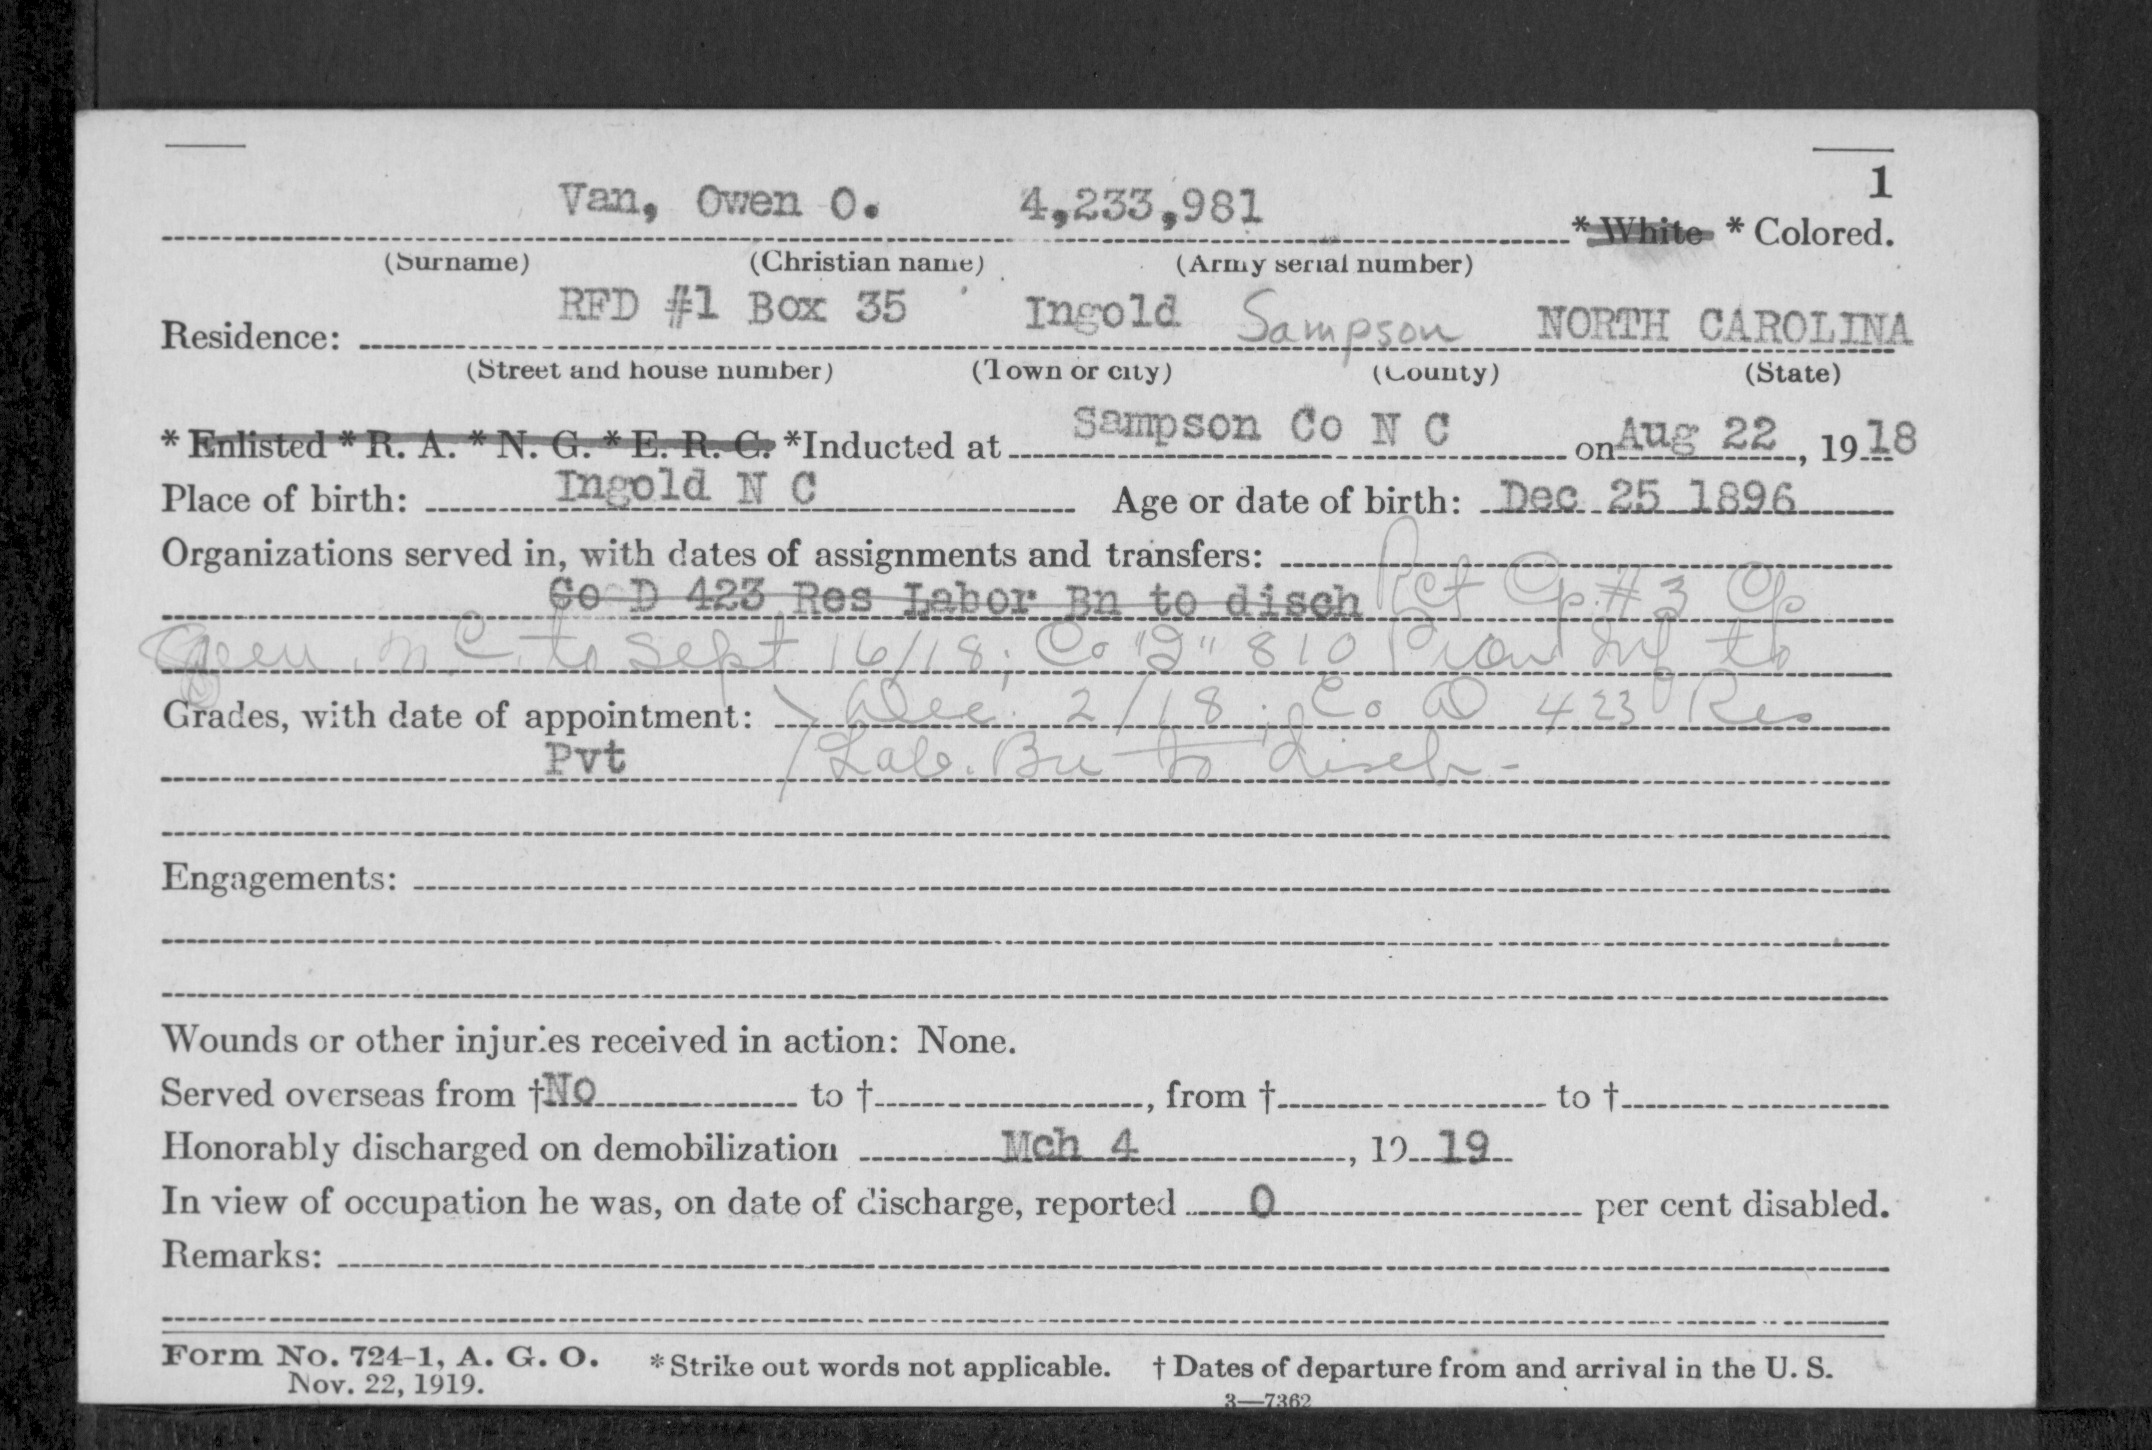 1
Van, Owen O. 4,233,981 * White * Colored.
(Surname) (Christian name) (Army serial number)
Residence: RFD #1 Box 35 Ingold Sampson NORTH CAROLINA
(Street and house number) (Town or city) (County) (State)
* Enlisted * R. A. * N. G. * E. R. C. *Inducted at Sampson Co N C on Aug 22, 1918
Place of birth: Ingold N C Age or date of birth: Dec 25 1896
Organizations served in, with dates of assignments and transfers:
Co D 423 Res Labor Bn to disch Rct Cp #3 Cp
Green N C. to Sept 16/18; Co "D" 810 Pion Inf to
Grades, with date of appointment: Dec. 2/18; Co D 423 Res
Pvt Lab. Bn to disch-
Engagements:
Wounds or other injuries received in action: None.
Served overseas from †No to †, from † to †
Honorably discharged on demobilization Mch 4, 1919
In view of occupation he was, on date of discharge, reported 0 per cent disabled.
Remarks:
Form No. 724-1, A. G. O. *Strike out words not applicable. † Dates of departure from and arrival in the U. S.
Nov. 22, 1919.
3—7362